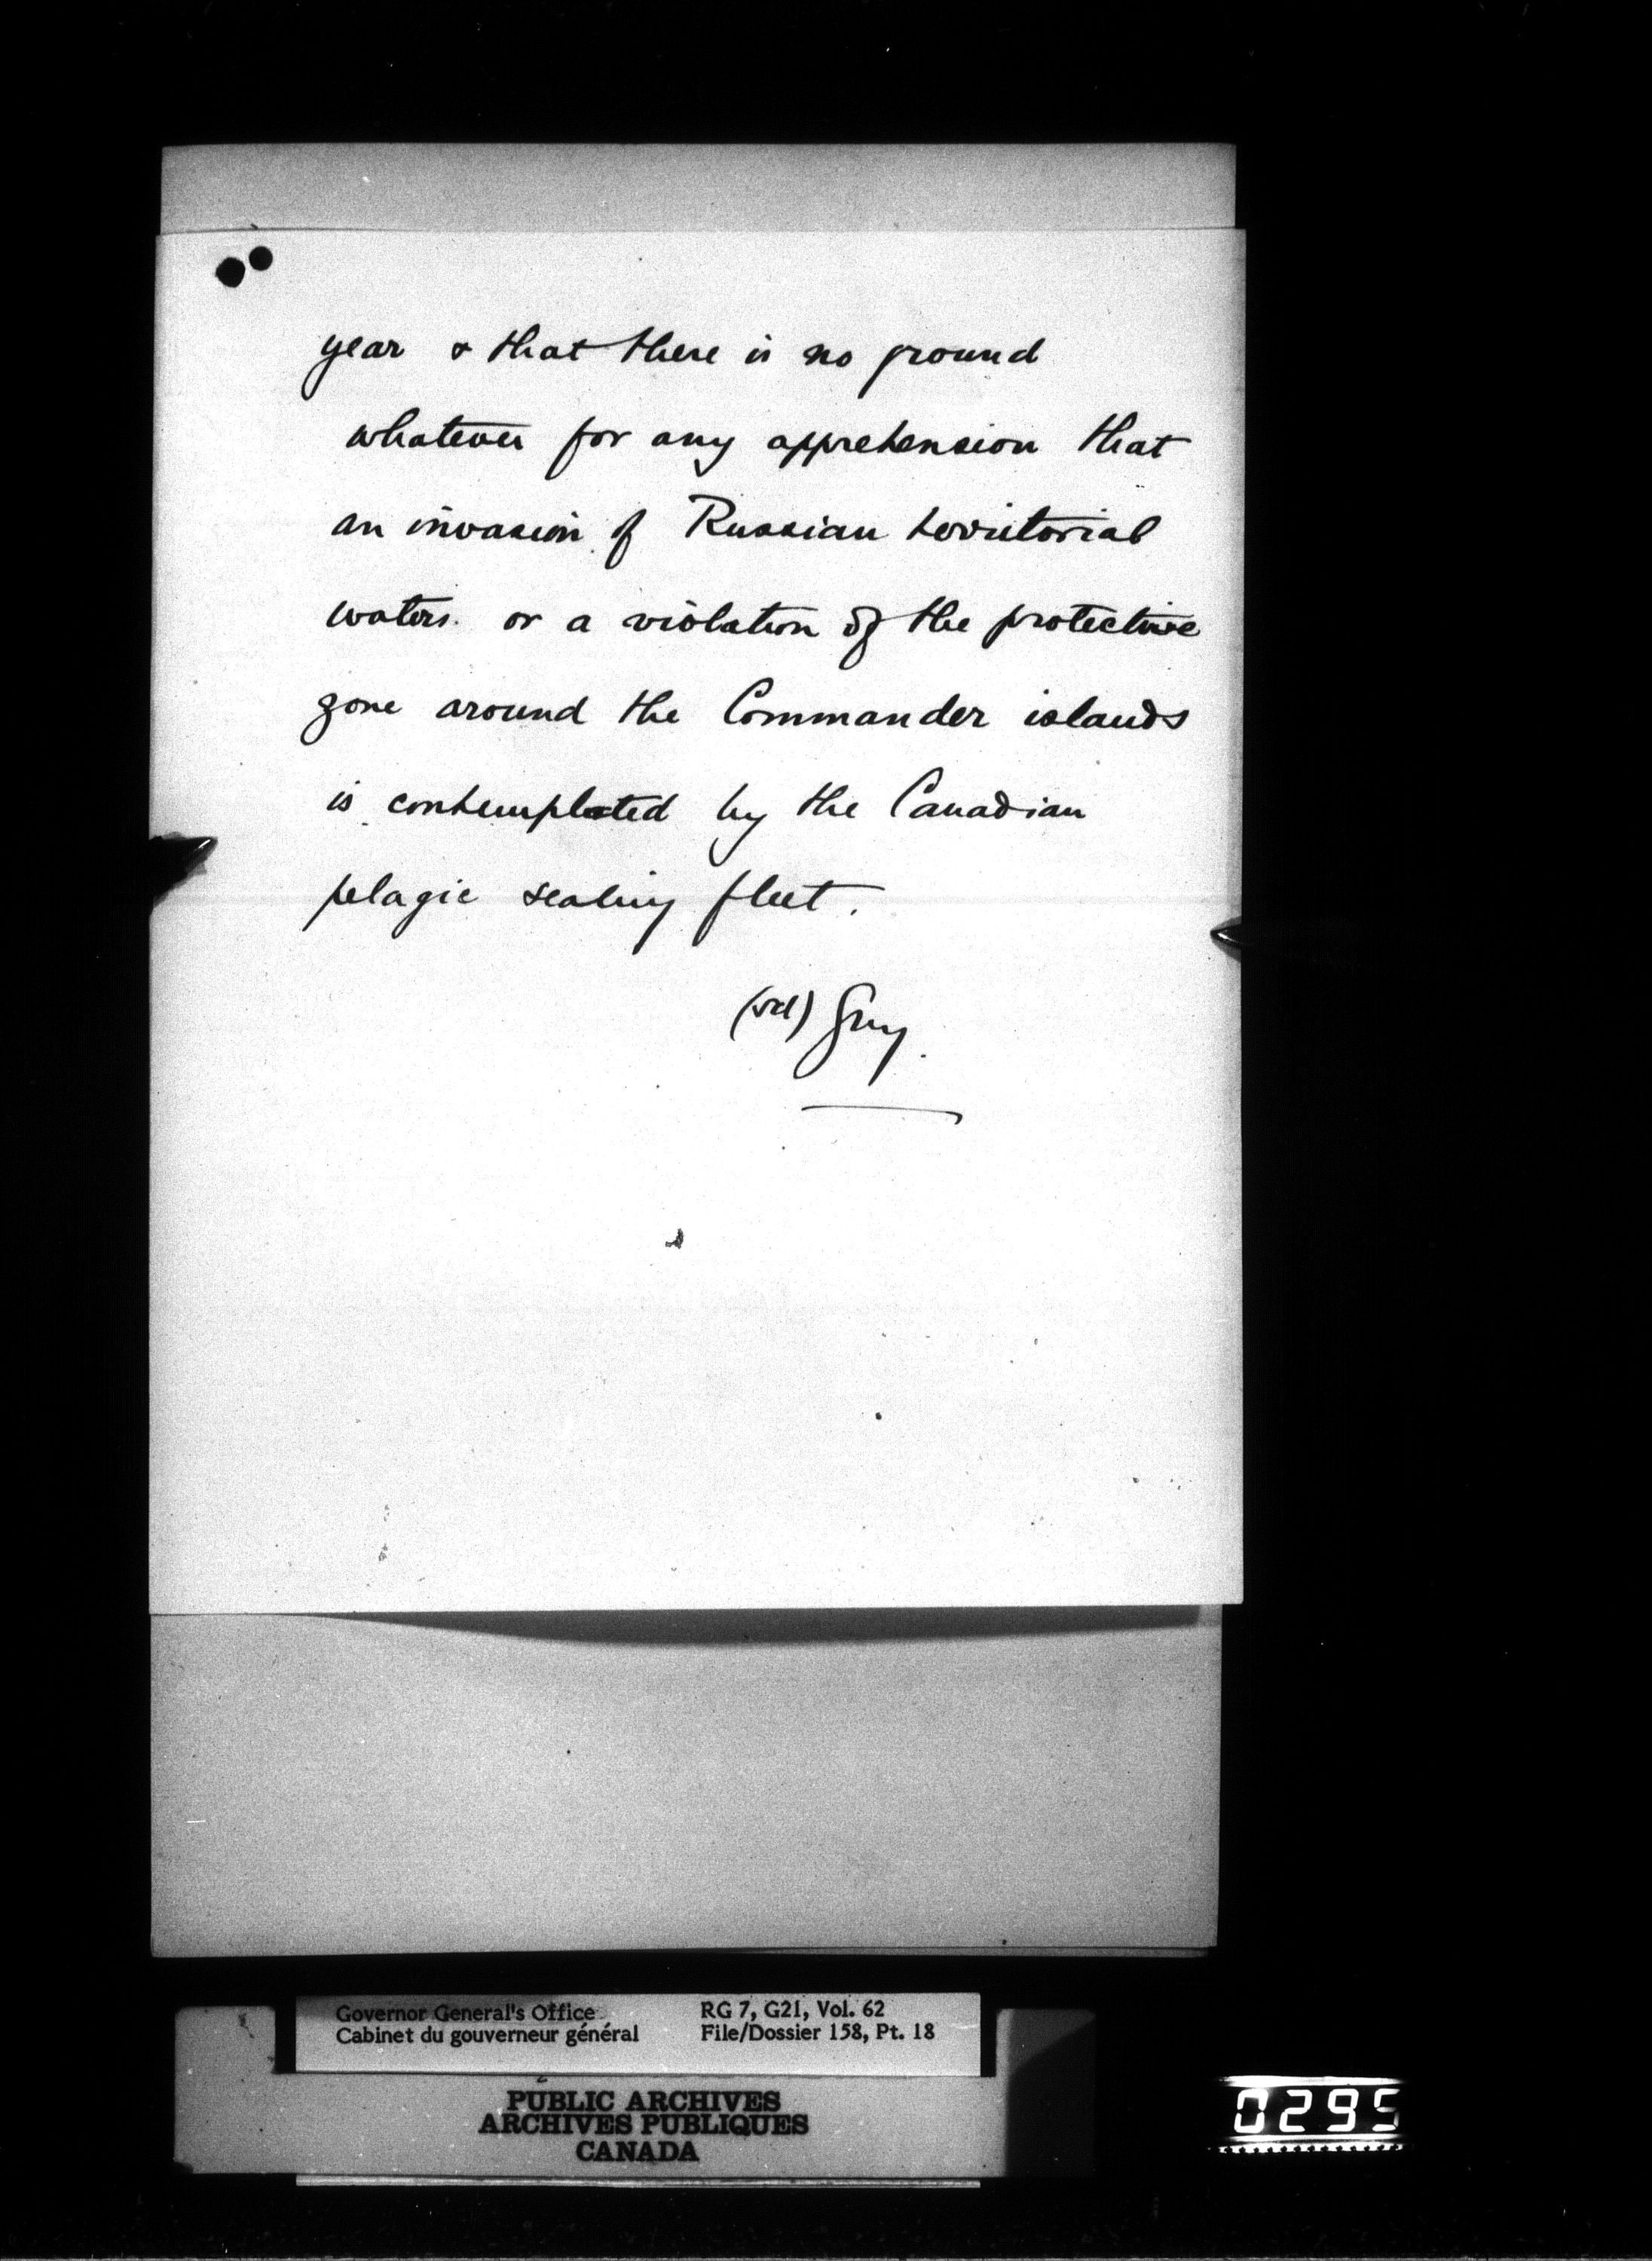 year & that there is no ground
whatever for any apprehension that
an invasion of Russian territorial
waters or a violation of the protective
zone around the Commander islands
is contemplated by the Canadian
pelagic sealing fleet.
(sd) Grey.
Governor General's Office
Cabinet du gouverneur général
RG 7, G21, Vol. 62
File/Dossier 158, Pt. 18
PUBLIC ARCHIVES
ARCHIVES PUBLIQUES
CANADA
0295